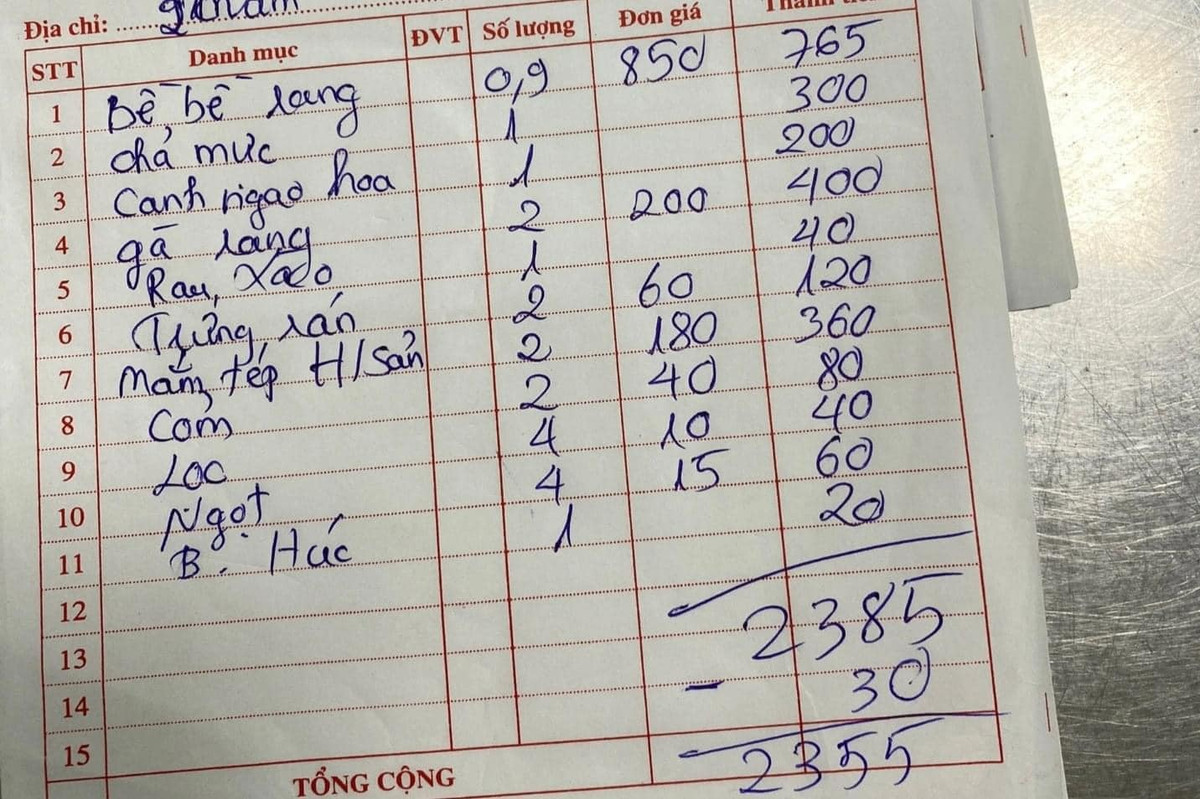 Địa chỉ:
STT Danh mục ĐVT Số lượng Đơn giá Thành tiền
1 Bề, bề rang 0,9 850 765
2 chả mực 1 300
3 Canh ngao hoa 1 200
4 gà rang 2 200 400
5 Rau, xào 1 40
6 Trứng, rán 2 60 120
7 Mắm, tép H/Sản 2 180 360
8 Cơm 2 40 80
9 Lọc 4 10 40
10 Ngọt 4 15 60
11 B. Húc 1 20
12
13 2385
14 - 30
15
TỔNG CỘNG 2355